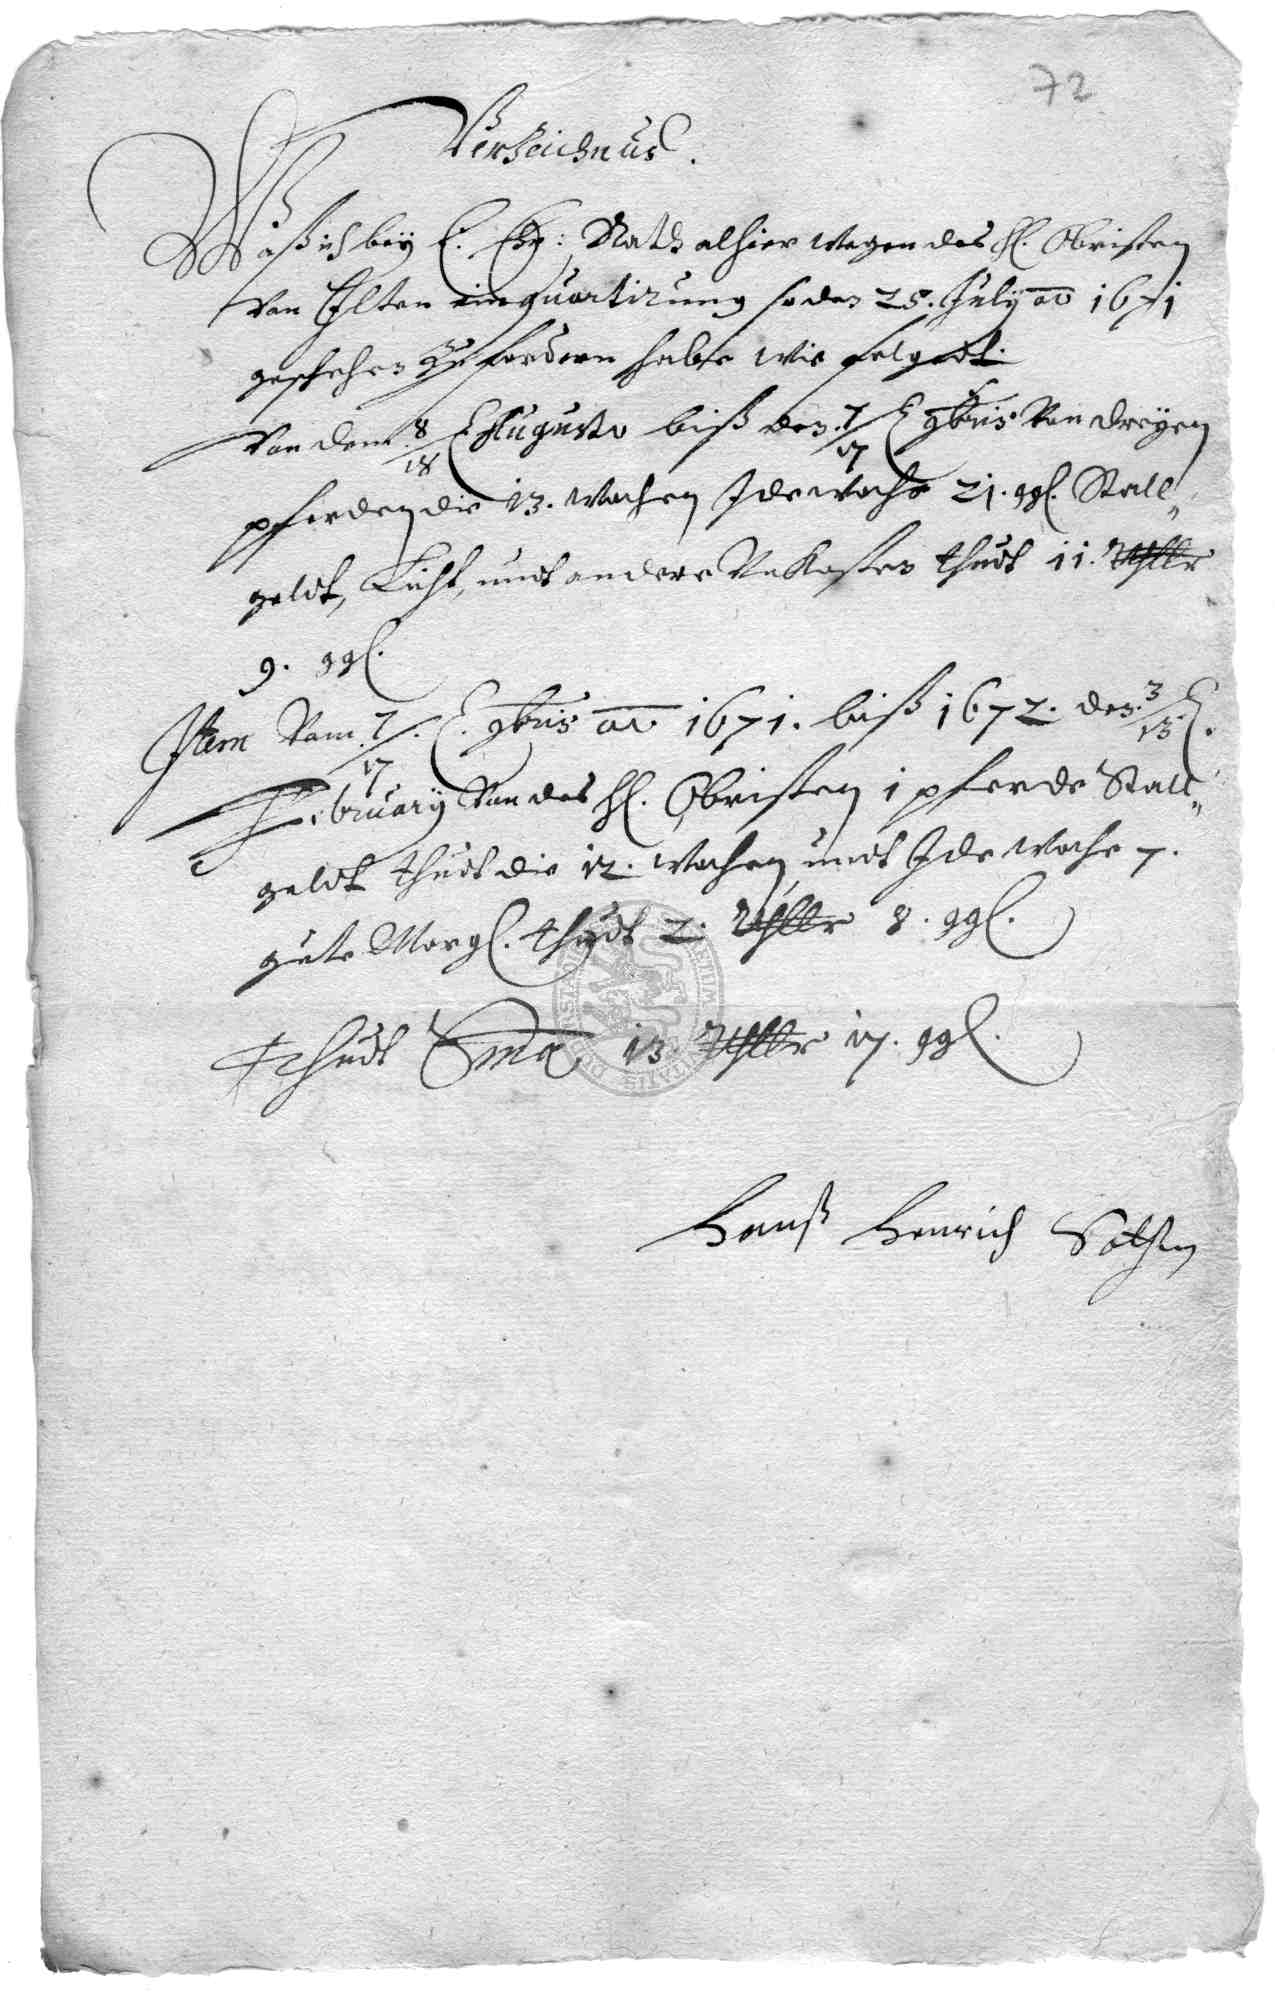 72
Verzeichnus.
Waß ich bey E. E. Rath alhier wegen des H. Obristen
Von Ilten einquartirung so den 25. July ao 1671
geschehen zu fordern habe wie folget:
Von dem 8/18 Augusto biß den 7/17 9bris Von dreyen
pferden die 13. Wochen Jde woche 21. ggl. Stall„
geldt, Licht, undt andere Unkosten thudt 11. Rthlr
9. ggl.
Item Vom 7/17 9bris ao 1671. biß 1672. den 3/13
February Von des H. Obristen 1 pferde Stall„
geldt thudt die 12. Wochen undt Jde woche 7.
gute Morgl. thudt 2. Rthlr 8. ggl.
Thudt Sma 13. Rthlr 17. ggl.
Hanß Henrich